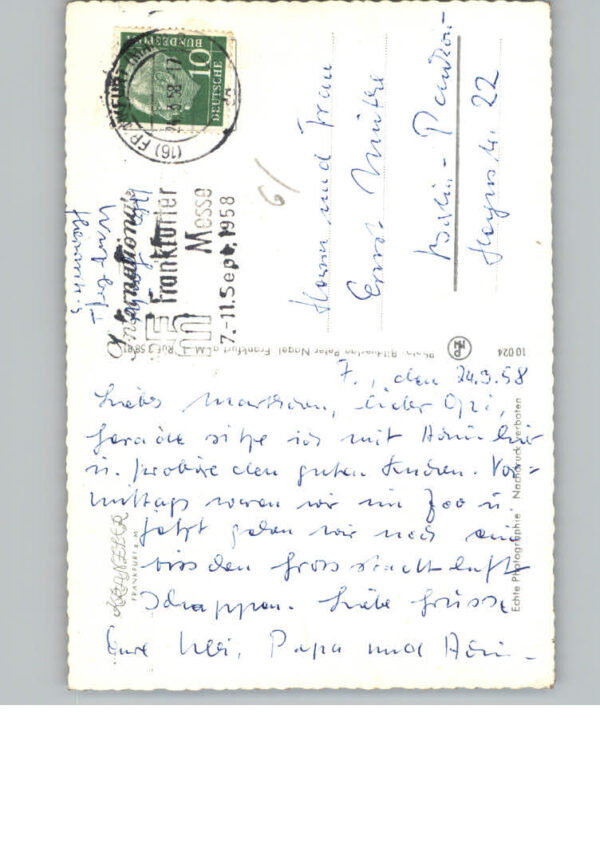 DEUTSCHE
BUNDESPOST
10
(16) FRANKFURT (MAIN)
Internationale
Frankfurter
Messe
7.-11. Sept. 1958
6/
Herrn und Frau
Ernst
Berlin - Pankow
22
Photo Bildverlag Peter Nagel, Frankfurt a. M.
10 024
F., den 24.3.58
Liebes lieber Opi,
Gerade sitze ich mit hier
u. probiere den guten Kuchen. Vor-
mittags waren wir im Zoo u.
jetzt gehen wir noch ein
bisschen Grossstadtluft
schnappen. Liebe Grüsse
Eure Papa und
KRANZLER
FRANKFURT A. M.
Echte Photographie Nachdruck verboten